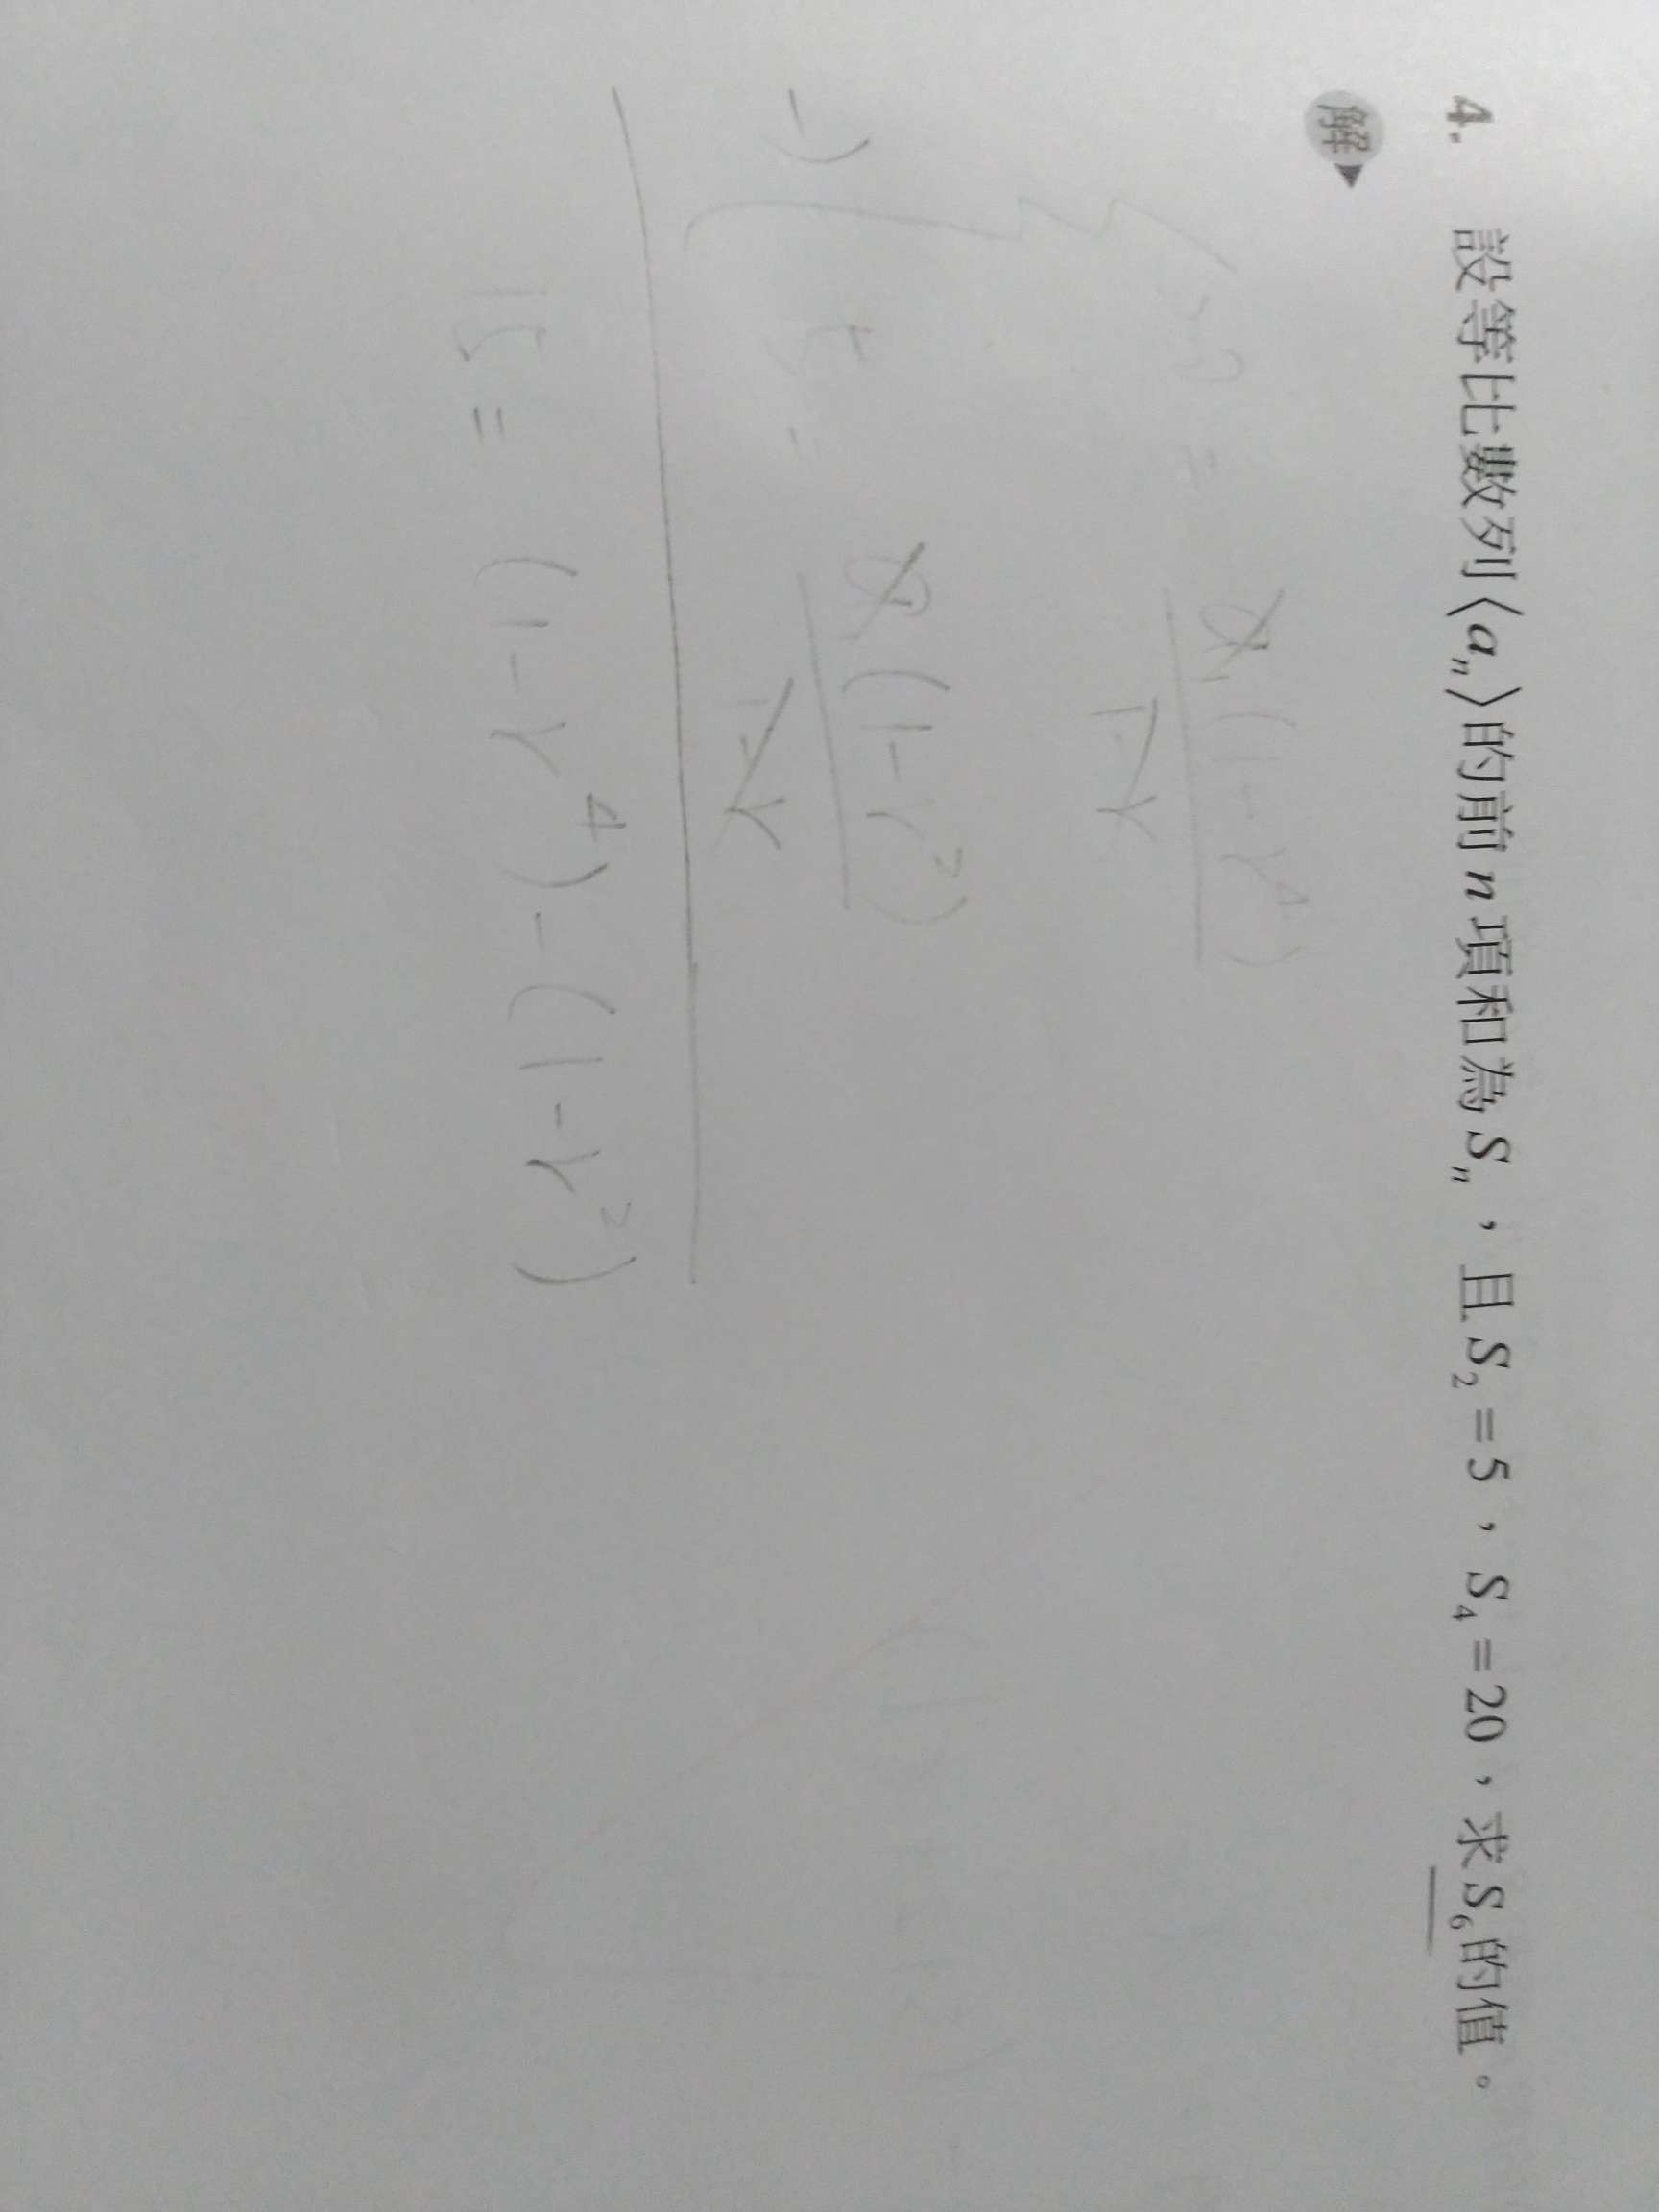 4. 設等比數列〈aₙ〉的前 n 項和為 Sₙ，且 S₂=5，S₄=20，求 S₆的值。
解
20 = a₁(1-r⁴)
1-r
-) 5 = a₁(1-r²)
1-r
15 = (1-r⁴)-(1-r²)